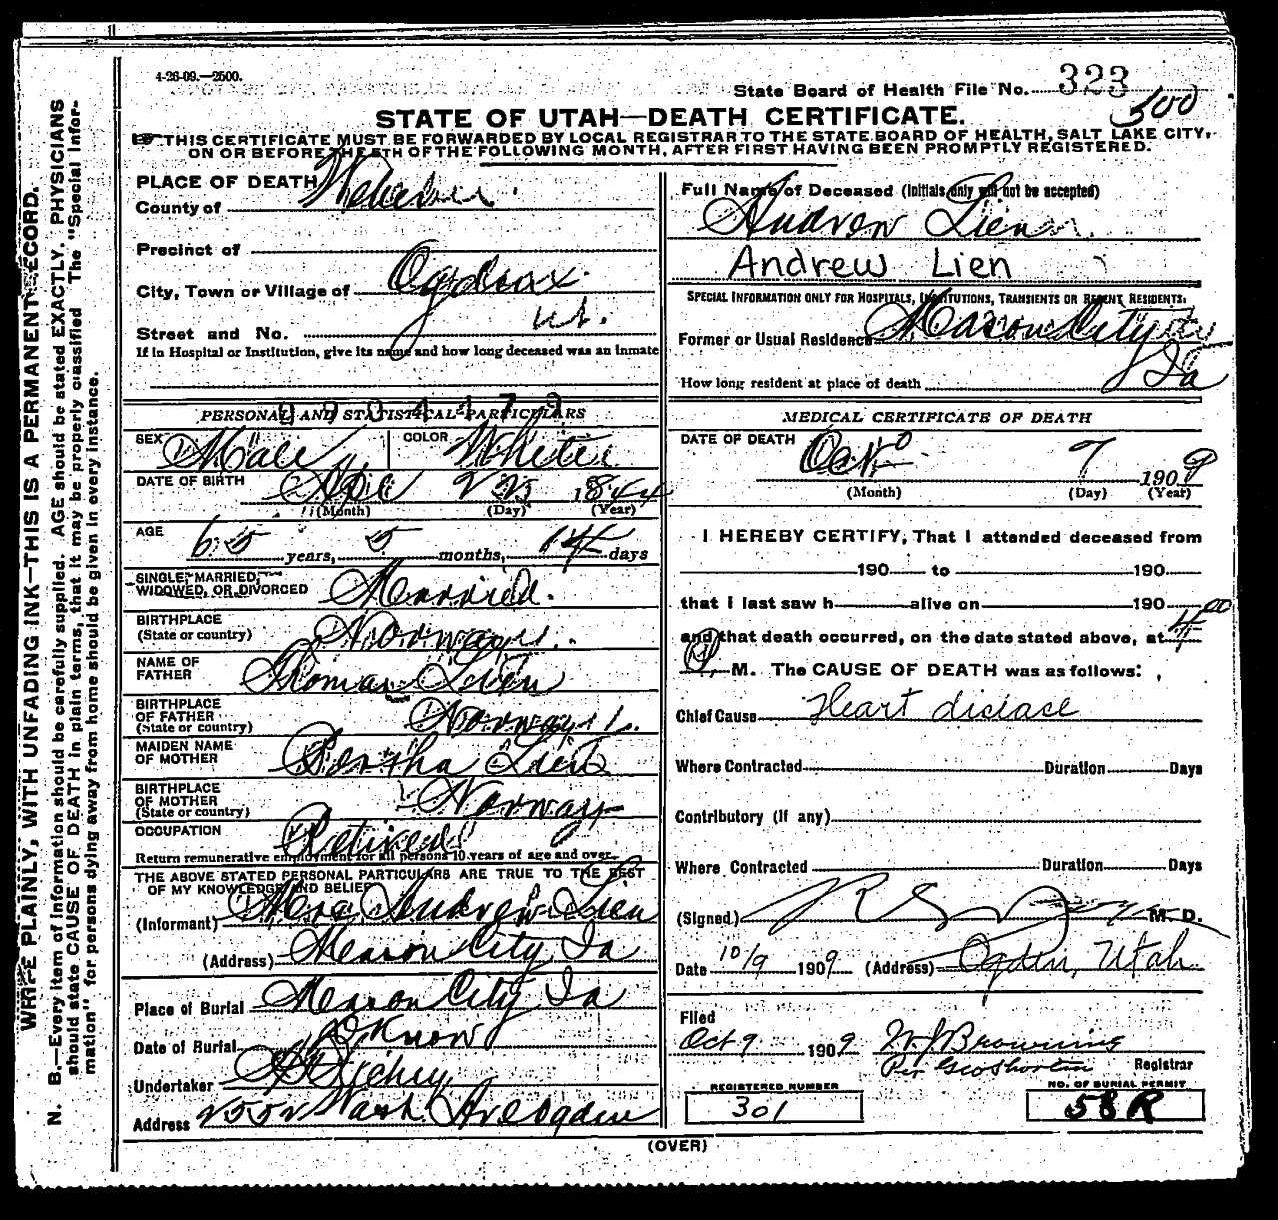 4-26-09.—2500.
State Board of Health File No. 323
500
STATE OF UTAH—DEATH CERTIFICATE.
THIS CERTIFICATE MUST BE FORWARDED BY LOCAL REGISTRAR TO THE STATE BOARD OF HEALTH, SALT LAKE CITY,
ON OR BEFORE THE 5TH OF THE FOLLOWING MONTH, AFTER FIRST HAVING BEEN PROMPTLY REGISTERED.
WRITE PLAINLY, WITH UNFADING INK—THIS IS A PERMANENT RECORD.
N. B.—Every item of information should be carefully supplied. AGE should be stated EXACTLY. PHYSICIANS
should state CAUSE OF DEATH in plain terms, that it may be properly classified. The "Special Infor-
mation" for persons dying away from home should be given in every instance.
PLACE OF DEATH
County of Weber
Precinct of
City, Town or Village of Ogden
Ut.
Street and No.
If in Hospital or Institution, give its name and how long deceased was an inmate
PERSONAL AND STATISTICAL PARTICULARS
SEX Male COLOR White
DATE OF BIRTH 22 1844
(Month) (Day) (Year)
AGE 65 years, 5 months, 14 days
SINGLE, MARRIED,
WIDOWED, OR DIVORCED Married.
BIRTHPLACE
(State or country) Norway
NAME OF
FATHER Thomas Lien
BIRTHPLACE
OF FATHER
(State or country) Norway
MAIDEN NAME
OF MOTHER Bertha Lien
BIRTHPLACE
OF MOTHER
(State or country) Norway
OCCUPATION Retired
Return remunerative employment for all persons 10 years of age and over.
THE ABOVE STATED PERSONAL PARTICULARS ARE TRUE TO THE BEST
OF MY KNOWLEDGE AND BELIEF
(Informant) Mrs Andrew Lien
(Address) Mason City Ia
Place of Burial Mason City Ia
Date of Burial Know
Undertaker Richey
Address 2552 Wash Ave Ogden
Full Name of Deceased (Initials only will not be accepted)
Andrew Lien
Andrew Lien
SPECIAL INFORMATION ONLY FOR HOSPITALS, INSTITUTIONS, TRANSIENTS OR RECENT RESIDENTS.
Former or Usual Residence Mason City
Ia
How long resident at place of death
MEDICAL CERTIFICATE OF DEATH
DATE OF DEATH Oct 7 1909
(Month) (Day) (Year)
I HEREBY CERTIFY, That I attended deceased from
190 to 190
that I last saw h alive on 190
and that death occurred, on the date stated above, at 4 00
M. The CAUSE OF DEATH was as follows:
Chief Cause Heart disease
Where Contracted Duration Days
Contributory (if any)
Where Contracted Duration Days
(Signed) M. D.
Date 10/9 1909 (Address) Ogden, Utah
Filed
Oct 9 1909 W J Browning
Registrar
Per Geo Shorten
REGISTERED NUMBER
301
NO. OF BURIAL PERMIT
58 R
(OVER)